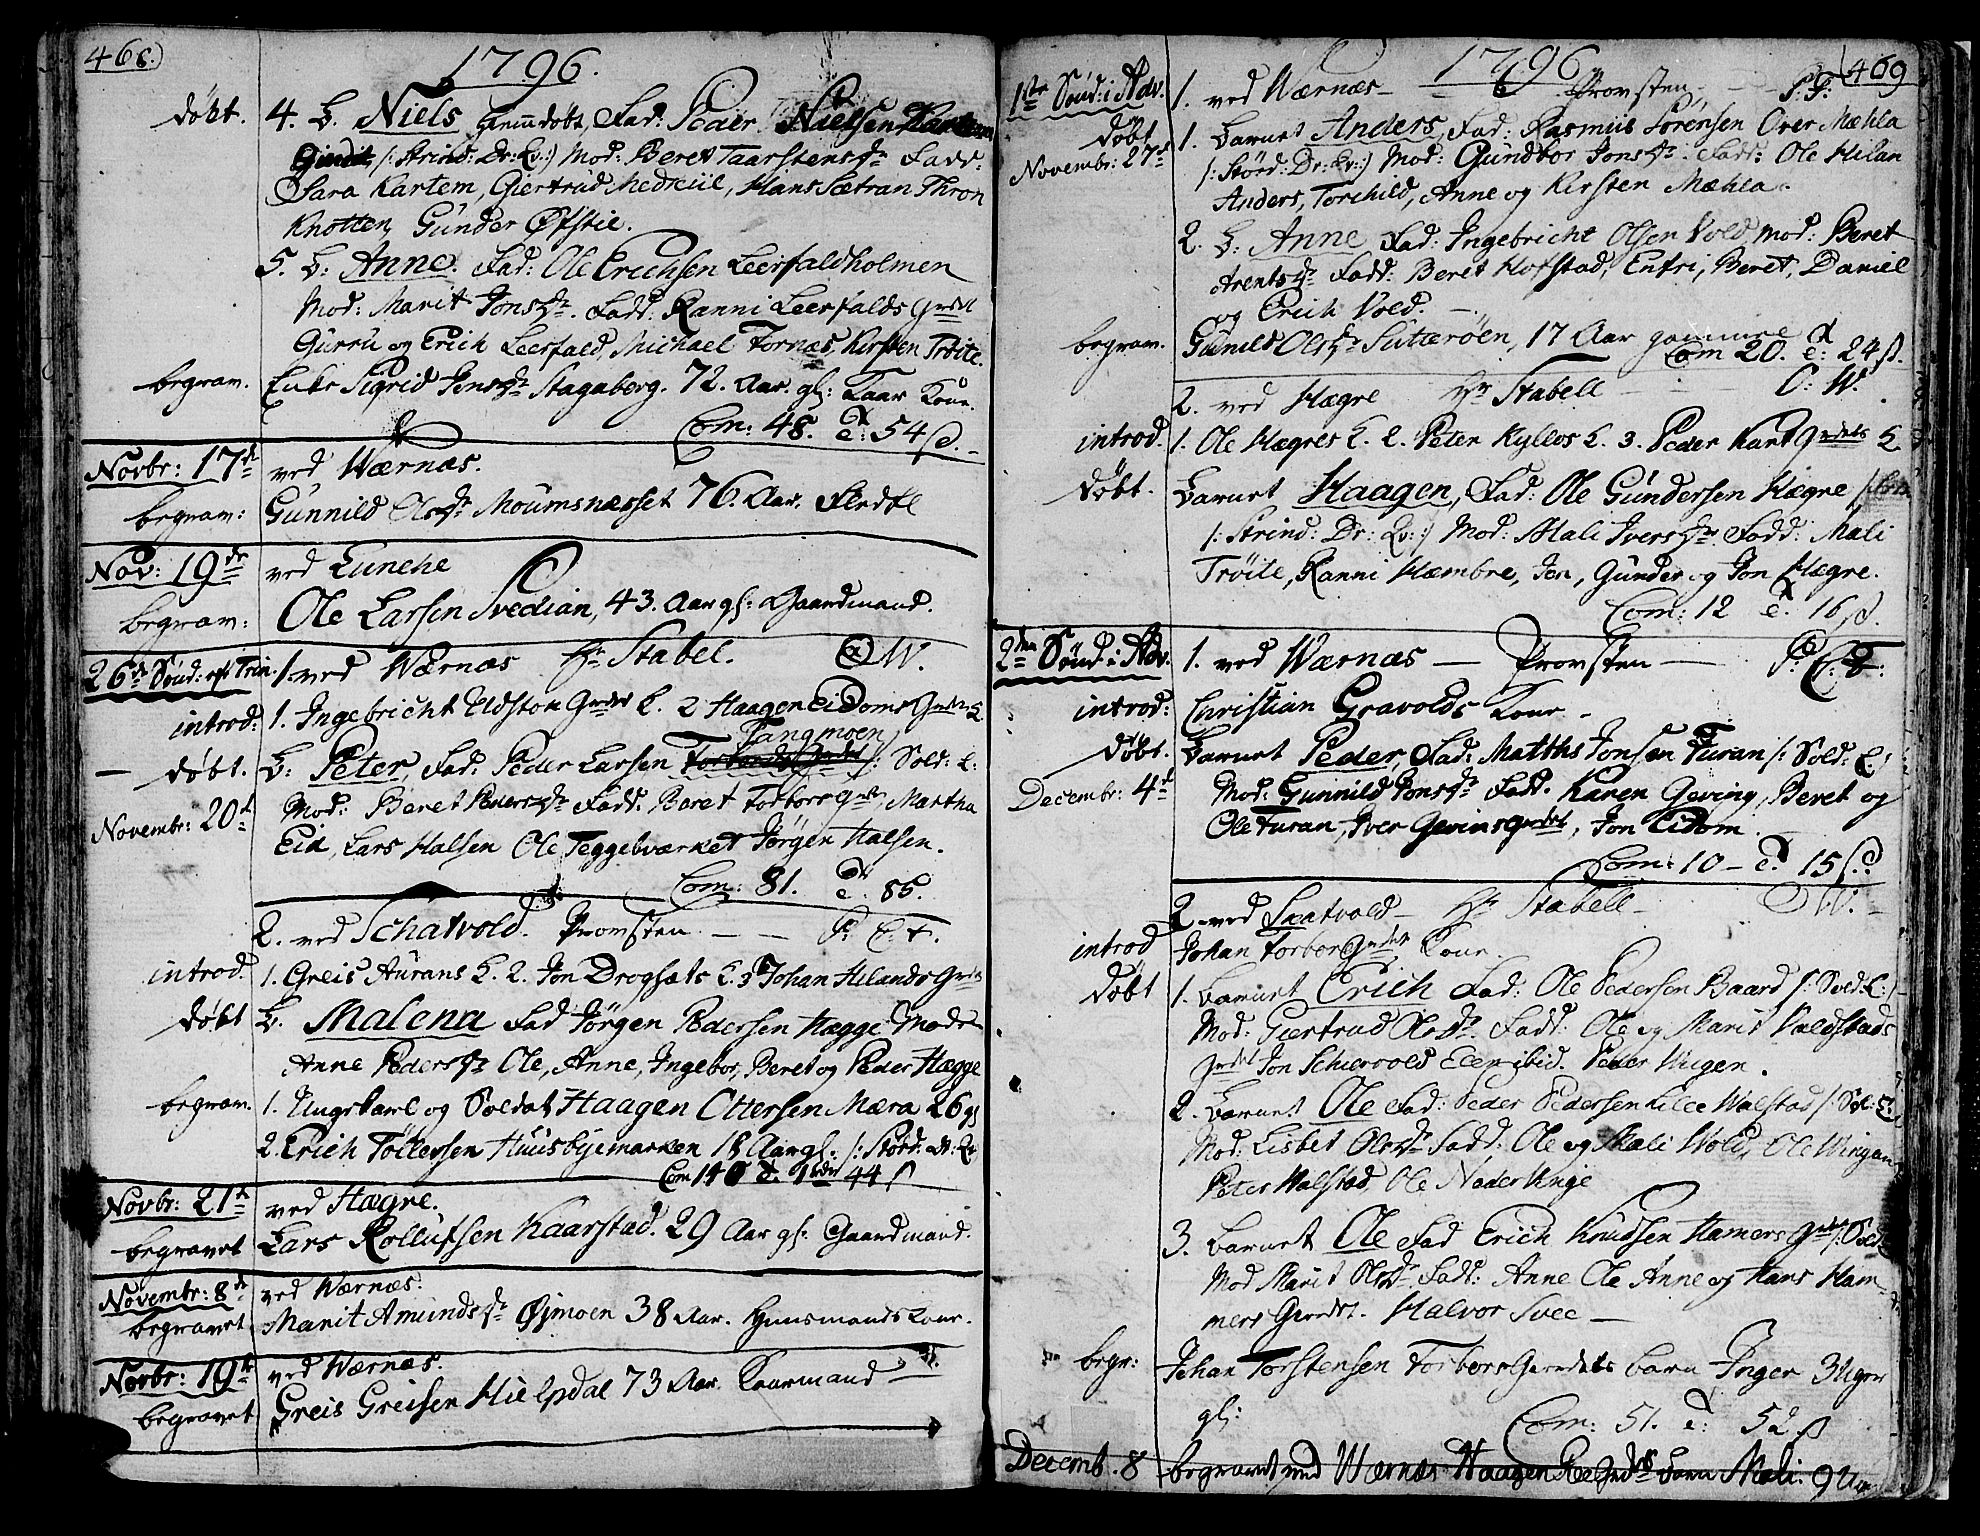 468.)
1796.
døbt. 4. B. Niels Hiemdøbt, Fad: Peder Nielsen
/: Strind: Dr: Ev:/ Mod: Beret Taarstensdr Fadd:
Sara Kartem, Giertrud Medkiil, Hans Sætran Thron
Knotten, Gunder Øfstie.
5. B: Anne. Fad: Ole Erichsen Leerfaldholmen
Mod: Marit Jonsdr. Fadd. Ranni Leerfalds Grdet
Gurru og Erich Leerfald, Michael Fornæs, Kirsten Trøite.
begrav. Enke Sigrid Jensdr Stagaberg. 72. Aar. gl: Kaar Kone.
Com: 48. e: 54 ß.
Novbr: 17de ved Wærnæs.
begrav: Gunnild Olsdr Moumsnesset 76. Aar.
Nov: 19de ved Lunche
begrav: Ole Larsen Svedian, 43. Aar gl: Gaardmand.
26de Sønd: eft Trin. 1. ved Wærnæs Hr Stabel. W.
introd: 1. Ingebricht Eldston Grdet K. 2 Haagen Eidoms Grdets K.
Tangmoen
døbt. B: Peter, Fad: Peder Larsen /: Sold: E:
Mod: Beret Pedersdr Fadd: Beret Torbors Grdt, Martha
Novembr: 20de
Eid, Lars Halsen Ole Teggelværket Jørgen Halsen.
Com: 81. e: 85.
2. ved Schatvold. Provsten. —
introd. 1. Greis Aurans K. 2. Jon Drogsæts K. 3 Johan Hilands Grdets
døbt B. Malena Fad Jørgen Pedersen Hægge Moder
Anne Pedersdr Ole, Anne, Ingebor, Beret og Peder Hægge
begrav. 1. Ungkarl og Soldat Haagen Ottersen Mæra 26 gl
2. Erich Tollersen Huusbyemarken 18 Aar gl. /: Størd: Dr: Ev:
Com 44 ß
Novbr: 21de ved Hægre.
begravet Lars Rollufsen Kaarstad. 29 Aar gl: Gaardmand.
Novembr: 8de ved Wærnæs.
begravet Marit Amundsdr Øimoen 38 Aar. Huusmands Kone.
Novbr: 19de ved Wærnæs.
begravet Greis Greisen Hielpdal 73 Aar. Kaarmand
1796.
469
1ste Sønd: i Adv. 1. ved Wærnæs — Provsten.
døbt 1. Barnet Anders, Fad: Rasmus Sørensen Over Mæhla
Novembr: 27de /: Størd: Dr: Ev:/ Mod: Gundbor Jonsdr. Fadd: Ole Milan
Anders, Torchild, Anne og Kirsten Mæhla.
2. B: Anne Fad: Ingebricht Olsen Vold Mod: Beret
Arentsdr Fadd: Beret Hofstad, Entri, Beret, Daniel
og Erich Vold.
begrav. Gunild Olsdr Sutterøen, 17 Aar gammel
Com 20. e: 24 ß.
2. ved Hægre Hr Stabell — O: W.
introd. 1. Ole Hægres K. 2. Peter Kyllos K. 3. Peder Kart Grdets K
døbt. Barnet Haagen, Fad: Ole Gundersen Hægre
/: Strind: Dr: Ev:/ Mod: Mali Iversdr. Fadd: Mali
Trøite, Ranni Hæmbre, Jen, Gunder og Jon Hægre.
Com: 12 e. 16 ß.
2den Sønd: i Adv. 1. ved Wærnæs — Provsten —
introd: Christian Gravolds Kone
døbt. Barnet Peder, Fad: Matths Jonsen Furan /: Sold: E:/
Decembr: 4de Mod: Gunnild Jonsdr Fadd. Karen Geving, Beret og
Ole Furan, Iver Gevinsgrdet, Jon Eidom.
Com: 10 — e. 15 ß.
2. ved Scatvold — Hr Stabell — W.
introd Johan Torbor Grdets Kone.
døbt 1. Barnet Erich Fad: Ole Pedersen Baard /: Sold: E:/
Mod: Giertrud Olsdr. Fadd: Ole og Marit Valdstads
Grdet Jon Schiervold Elen ibid. Peder Wigen.
2. Barnet Ole Fad: Peder Pedersen Lille Walstad /: Sol: E:
Mod: Lisbet Olsdr Fadd: Ole og Mali Wold, Ole Wingan
Peter Valstad, Ole Nedervinge
3. Barnet Ole Fad Erich Knudsen Hamers Grdet /: Sold:
Mod Marit Olsdr. Fadd: Anne Ole Anne og Hans Ham-
mers Gierdet. Halvor Svee —
begr: Johan Torstensen Torbors Gierdets barn Inger 3 Uger
gl:
Com: 51. e: 52 ß
Decemb. 8 begravet ved Wærnæs Haagen Ree Grdets barn Mali. 9 U